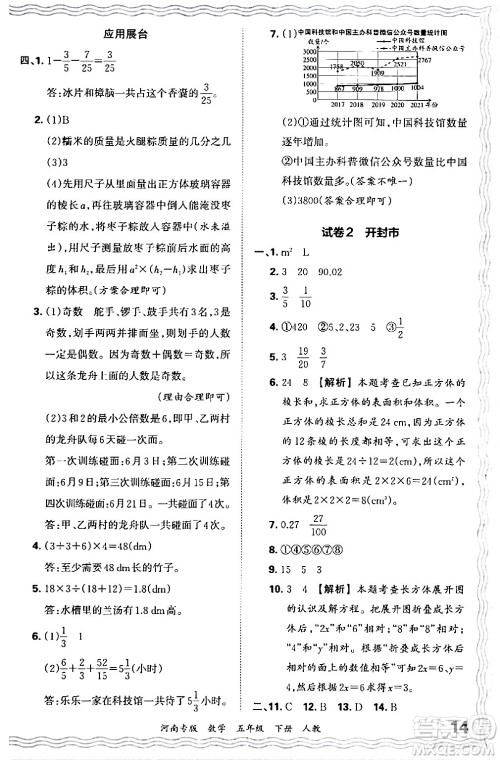 应用展台
四、1. 1-3/5-7/25=3/25
答:冰片和樟脑一共占这个香囊的3/25。
2. (1)B
(2)糯米的质量是火腿粽质量的几分之几
(3)3
(4)先用尺子从里面量出正方体玻璃容器
的棱长a,再往玻璃容器中倒入适量的水,
然后将枣子粽放入容器(水未溢出,枣子
粽浸没),测量枣子粽放入前后水面的高
度h₁和h₂,根据(h₂-h₁)×a²求出枣子
粽的体积。(方案合理即可)
3. (1)奇数 舵手、鼓手、锣手共有3名,3是
奇数,划手两两并排而坐,划手的人数
一定是偶数。因为奇数+偶数=奇数,所
以这条龙舟上的总人数是奇数。
(理由合理即可)
(2)3和2的最小公倍数是6,甲、乙两村
的龙舟队每6天碰面一次。
第一次训练碰面:6月3日;第二次训练
碰面:6月9日;第三次训练碰面:6月15日;
第四次训练碰面:6月21日
答:甲、乙两村的龙舟队一共碰面了4次。
4. (3+3+6)×4=48(dm)
答:一共需要48 dm长的竹子。
5. 18×3÷(12-18÷
答:水槽里的兰汤有1.8 dm高。
6. (1)1/3 1
(2)6/5+2/15+52/15=5 1/3(小时)
答:乐乐一家在科技馆一共待了5 1/3小时。
7. (1) 中国科技馆和中国主办科普微信公众号数量统计图
数量/个
中国科技馆
中国主办科普微信公众号
3000
2500
2000
1500
1000
500
0
1758 2050 1909 2767
867 909 1004
2017 2018 2019 2020 2021 年份
(2)①通过统计图可知,中国科技馆的
数量一年比一年多。
②中国主办科普微信公众号数量比中国
科技馆数量多。(答案不唯一)
(3)3800(答案合理即可)
试卷2 开封市
一、1. m² L
2. 3 20 90,02
3. 3/5 1/10
4. ①420 ②5、2、5 ③1/2
5. 3 19/20 3/10
6. 24 8 【解析】本题考查已知正方体的
棱长和,求正方体的表面积和体积。正
方体的棱长总和=棱长×12,所以这个正
方体的棱长为24÷12=2(cm),所以正
方体的表面积是2×2×6=24(cm²),体
积是2×2×2=8(cm³)。
7. 0.27 27/100
8. ①④⑤⑥
9. 15 5 3
10. 3 4 【解析】本题考查长方体展开图
的认识及解方程。把展开图折叠成长方
体后,“2x”和“6”相对,“8”和“8”相对,
“4”和“y”相对。因为折叠成长方体后
相对面上的两个数相等,所以2x=6,
x=3,y=4。
二、11. C 12. B 13. D 14. B
河南专版 数学 五年级 下册 人教
14